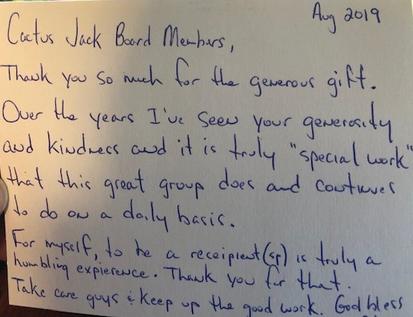 Aug 2019
Cactus Jack Board Members,
Thank you so much for the generous gift.
Over the years I've seen your generosity
and kindness and it is truly "special work"
that this great group does and continues
to do on a daily basis.
For myself, to be a receipient(sp) is truly a
humbling expierence. Thank you for that.
Take care guys & keep up the good work. God bless